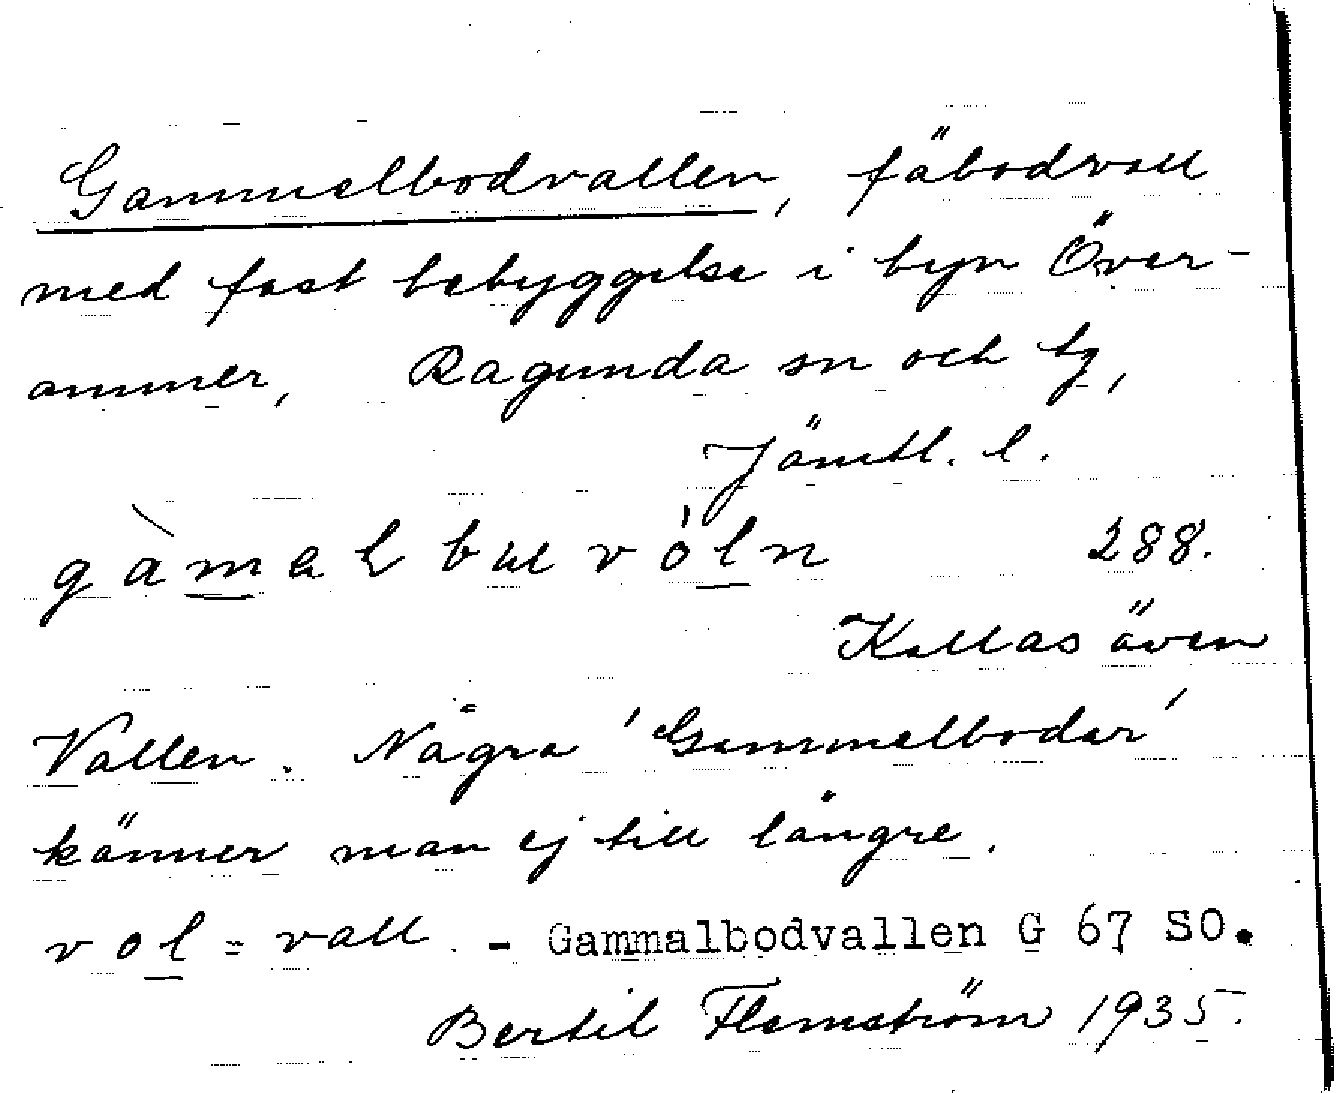 Gammelbodvallen, fäbodvall
med fast bebyggelse i byn Över-
ammer, Ragunda sn och tg,
Jämtl. l.
gàmaɫ buɩ vóln 288.
Kallas även
Vallen. Några 'Gammelbodar'
känner man ej till längre.
vol = vall. - Gammalbodvallen G 67 SO.
Bertil Flemström 1935.